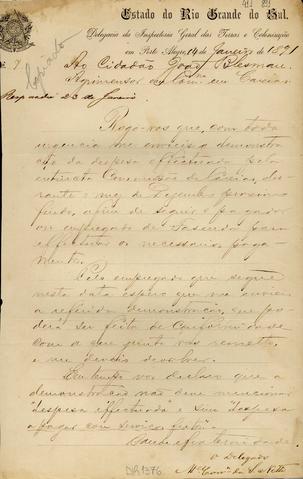 Estado do Rio Grande do Sul.
Delegacia da Inspectoria Geral das Terras e Colonisação
em Porto Alegre, 14 de Janeiro de 1891
Copiado
Nº 7
Ao Cidadão João
Agrimensor em Com.am em Caxias
Respondi 23 de Janeiro
Rogo-vos que, com toda
urgencia me envieis a demonstra-
ção da despeza effectuada pela
extincta Commissão de Caxias, du-
rante o mez de Dezembro proximo
findo, afim de seguir o pagador
ou empregado de Fazenda para
effectuar os necessarios paga-
mentos.
Pelo empregado que segue
nesta data espero que me envieis
a referida demonstração, que po-
derá ser feita de conformidade
com a que junto vos remetto
e me deveis devolver.
Em tempo vos declaro que a
demonstração não deve mencionar
despeza effectuada e sim despeza
a pagar com serviço
Saude e fraternidade
O Delegado
da S. Netto
DR1376